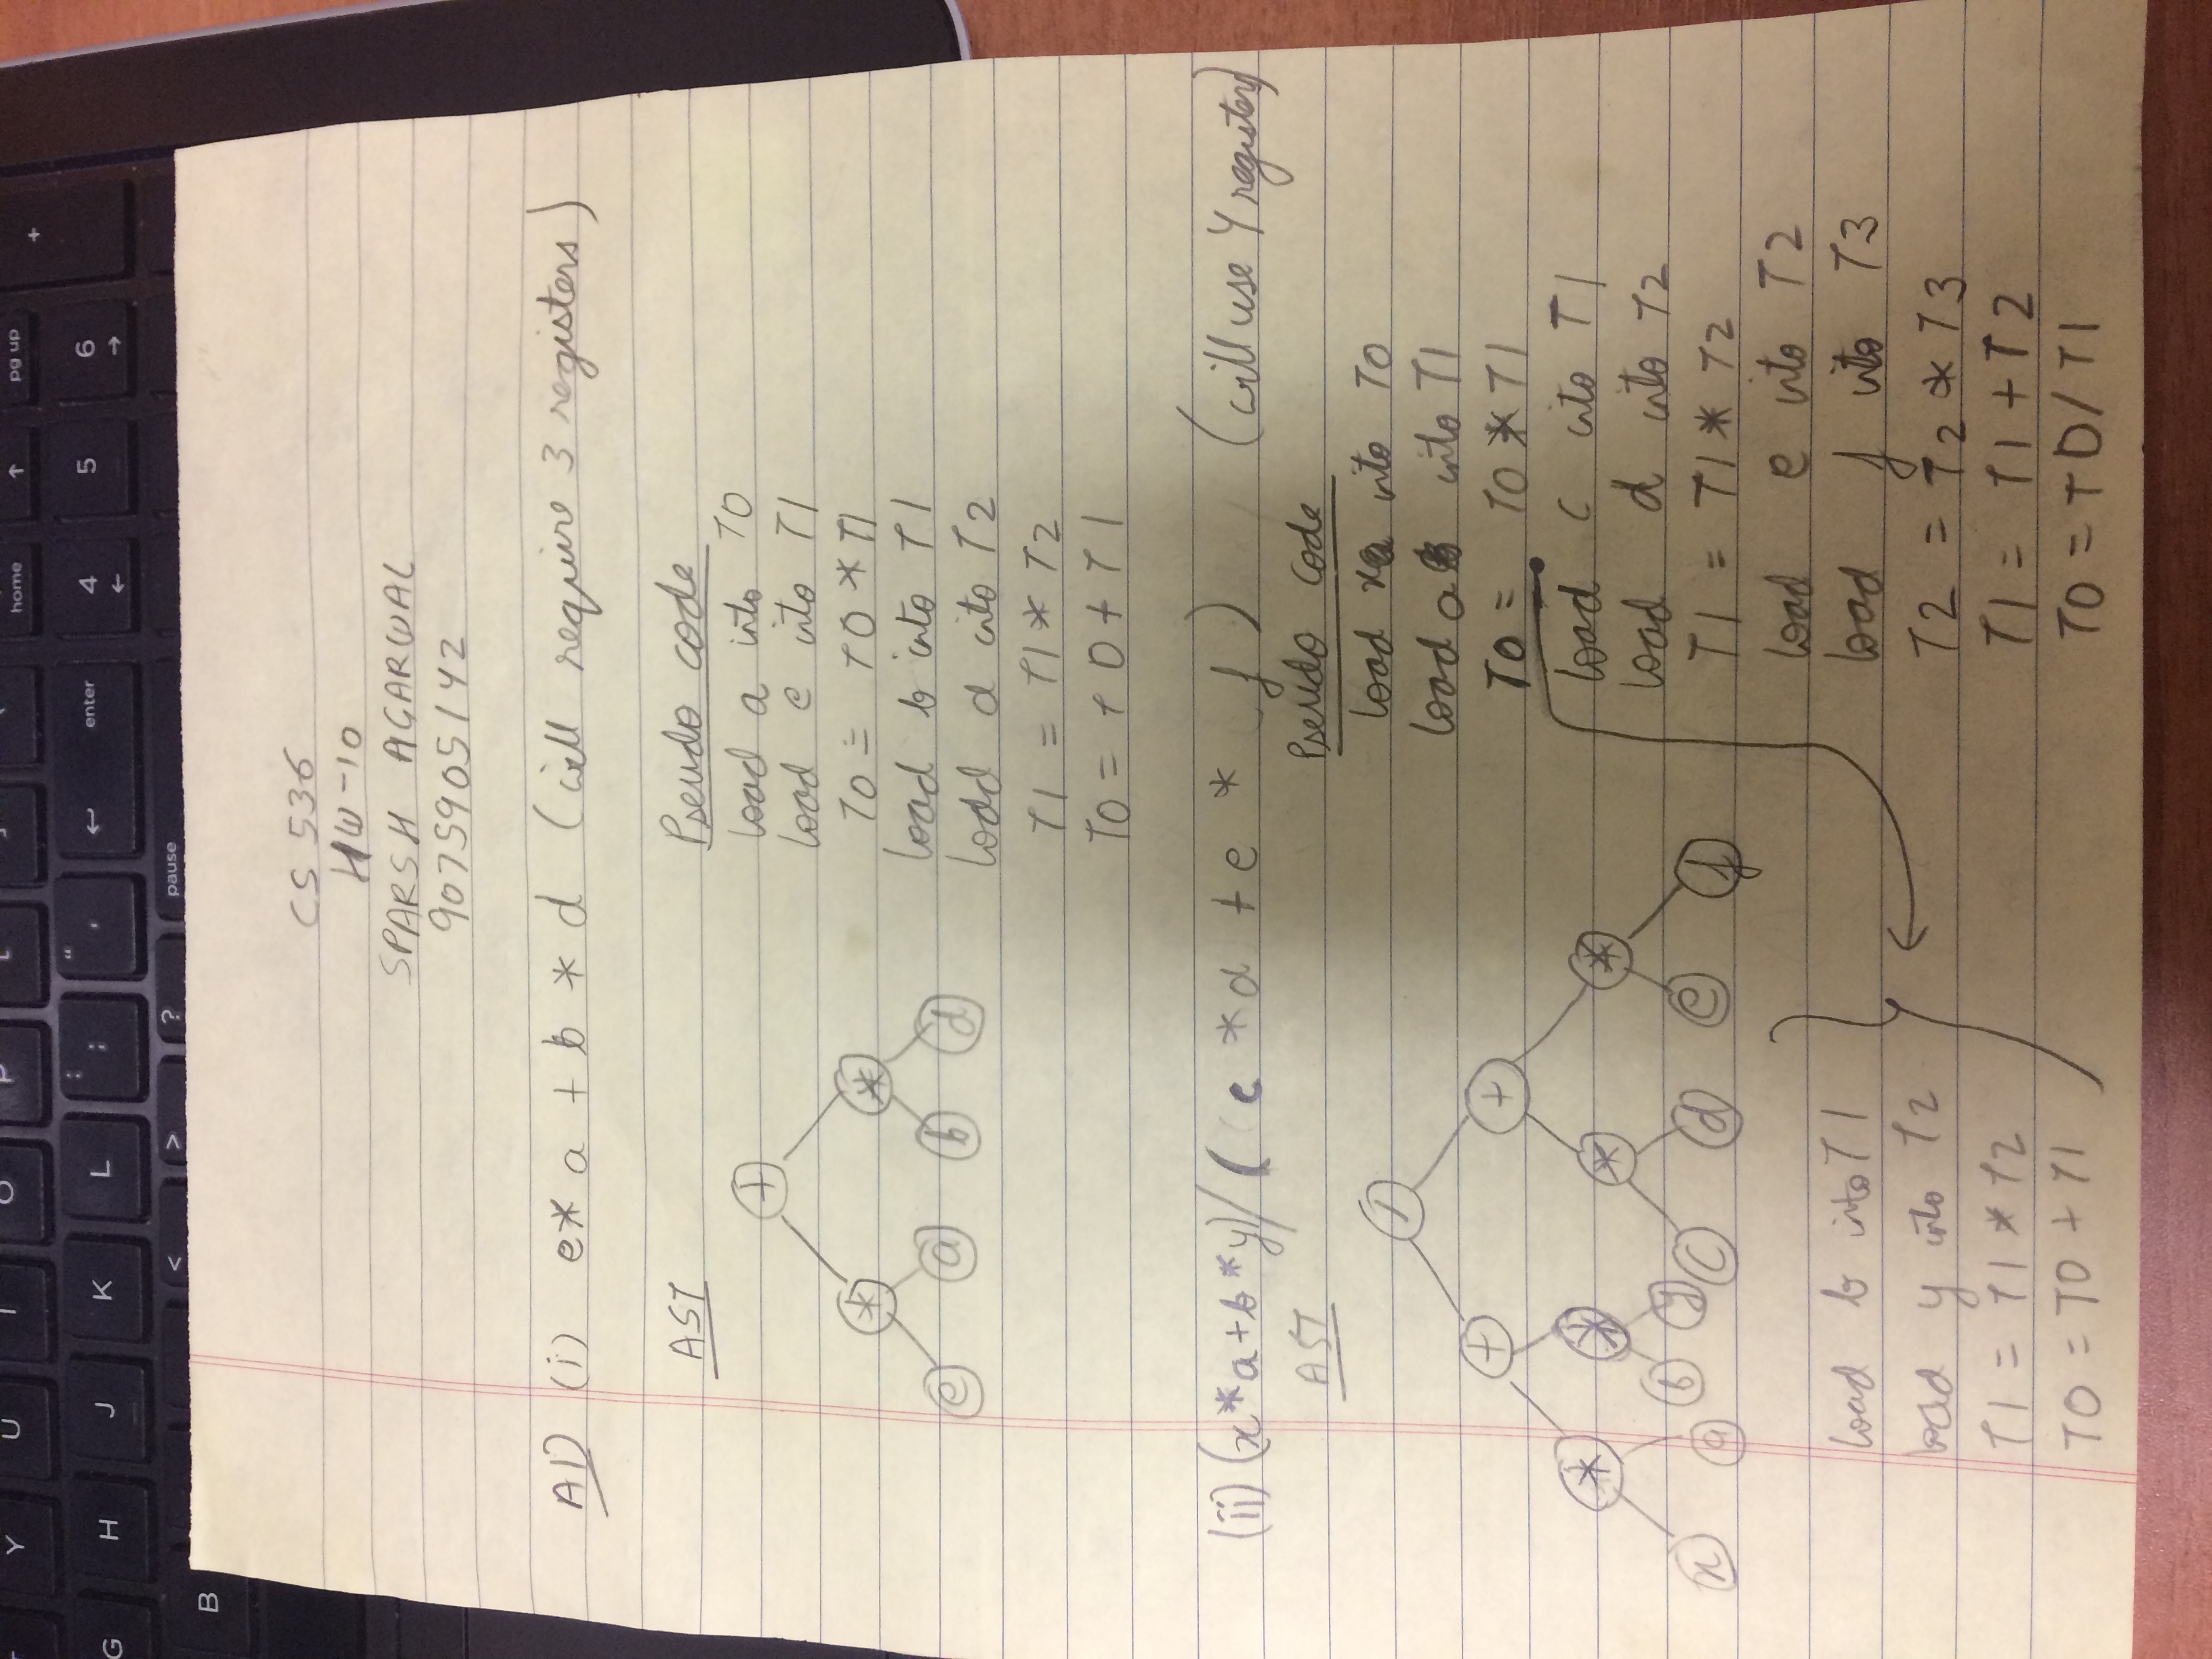 Y U I O P [ ] home ↑ pg up +
G H J K L : ; " ' ↵ enter 4 ← 5 6 →
B < > ? pause
CS 536
HW-10
SPARSH AGARWAL
9075905142
A1) (i) e* a + b * d (will require 3 registers)
AST
+
* *
e a b d
Pseudo code
load a into T0
load e into T1
T0 = T0 * T1
load b into T1
load d into T2
T1 = T1 * T2
T0 = T0 + T1
(ii) (x*a+b*y)/( c *d + e * f ) (will use 4 registers)
AST
/
+ +
* * * *
x a b y c d e f
Pseudo code
load x into T0
load a into T1
T0 = T0 * T1
load b into T1
load y into T2
T1 = T1 * T2
T0 = T0 + T1
load c into T1
load d into T2
T1 = T1 * T2
load e into T2
load f into T3
T2 = T2 * T3
T1 = T1 + T2
T0 = T0 / T1